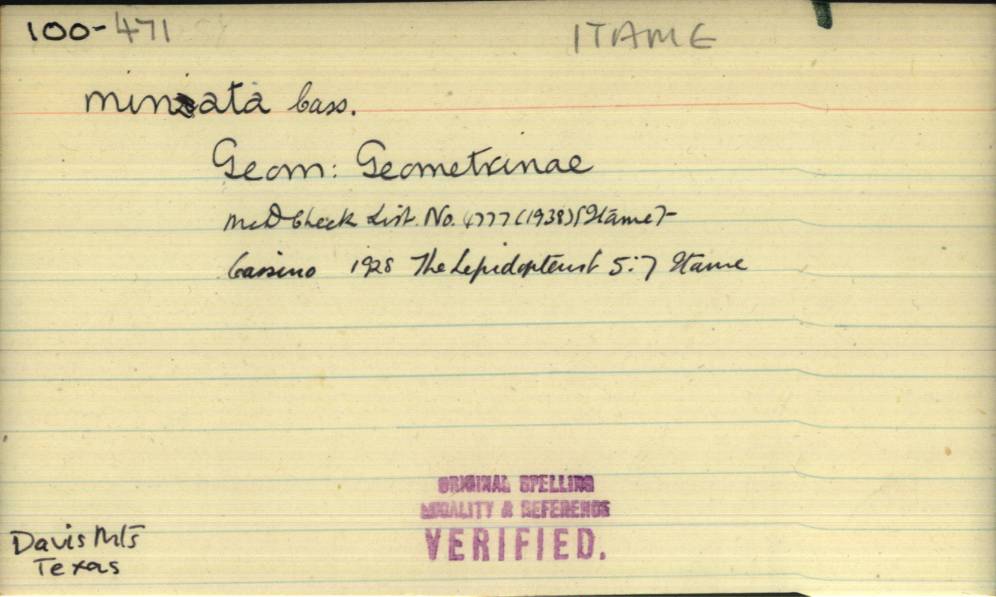 100-471
ITAME
minata Cass.
Geom: Geometrinae
McD Check List. No. 4777 (1938) [Itame]-
Cassino 1928 The Lepidopterist 5:7 Itame
ORIGINAL SPELLING
LOCALITY & REFERENCE
VERIFIED.
Davis Mts
Texas